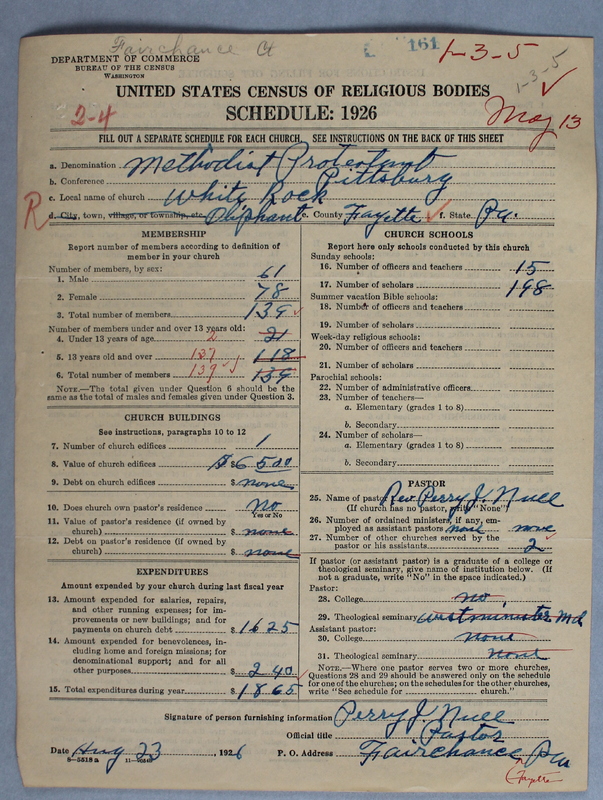 Fairchance Ct
161
1-3-5
1-3-5
DEPARTMENT OF COMMERCE
BUREAU OF THE CENSUS
WASHINGTON
UNITED STATES CENSUS OF RELIGIOUS BODIES
2-4
SCHEDULE: 1926
May 13
FILL OUT A SEPARATE SCHEDULE FOR EACH CHURCH. SEE INSTRUCTIONS ON THE BACK OF THIS SHEET
a. Denomination Methodist Protestant
b. Conference Pittsburg
c. Local name of church White Rock
R
d. City, town, village, or township, etc. Oliphant e. County Fayette f. State Pa.
MEMBERSHIP
Report number of members according to definition of
member in your church
Number of members, by sex:
1. Male 61
2. Female 78
3. Total number of members 139
Number of members under and over 13 years old:
4. Under 13 years of age 2 21
5. 13 years old and over 137 118
6. Total number of members 139 139
NOTE.—The total given under Question 6 should be
the same as the total of males and females given under Question 3.
CHURCH BUILDINGS
See instructions, paragraphs 10 to 12
7. Number of church edifices 1
8. Value of church edifices $ $6500
9. Debt on church edifices $ none
10. Does church own pastor's residence no
Yes or No
11. Value of pastor's residence (if owned by
church) $ none
12. Debt on pastor's residence (if owned by
church) $ none
EXPENDITURES
Amount expended by your church during last fiscal year
13. Amount expended for salaries, repairs,
and other running expenses; for im-
provements or new buildings; and for
payments on church debt $ 1625
14. Amount expended for benevolences, in-
cluding home and foreign missions; for
denominational support; and for all
other purposes $ 240
15. Total expenditures during year $ 1865
CHURCH SCHOOLS
Report here only schools conducted by this church
Sunday schools:
16. Number of officers and teachers 15
17. Number of scholars 198
Summer vacation Bible schools:
18. Number of officers and teachers
19. Number of scholars
Week-day religious schools:
20. Number of officers and teachers
21. Number of scholars
Parochial schools:
22. Number of administrative officers
23. Number of teachers—
a. Elementary (grades 1 to 8)
b. Secondary
24. Number of scholars—
a. Elementary (grades 1 to 8)
b. Secondary
PASTOR
25. Name of pastor Rev Perry J. Null
(If church has no pastor, write "None")
26. Number of ordained ministers, if any, em-
ployed as assistant pastors none none
27. Number of other churches served by the
pastor or his assistants 2
If pastor (or assistant pastor) is a graduate of a college or
theological seminary, give name of institution below. (If
not a graduate, write "No" in the space indicated.)
Pastor:
28. College no
29. Theological seminary westminster Md
Assistant pastor:
30. College none
31. Theological seminary none
NOTE.—Where one pastor serves two or more churches,
Questions 28 and 29 should be answered only on the schedule
for one of the churches; on the schedules for the other churches,
write "See schedule for church."
Signature of person furnishing information Perry J. Null
Official title Pastor
Date Aug 23, 1926 P. O. Address Fairchance, Pa
8-5518 a
(Fayette